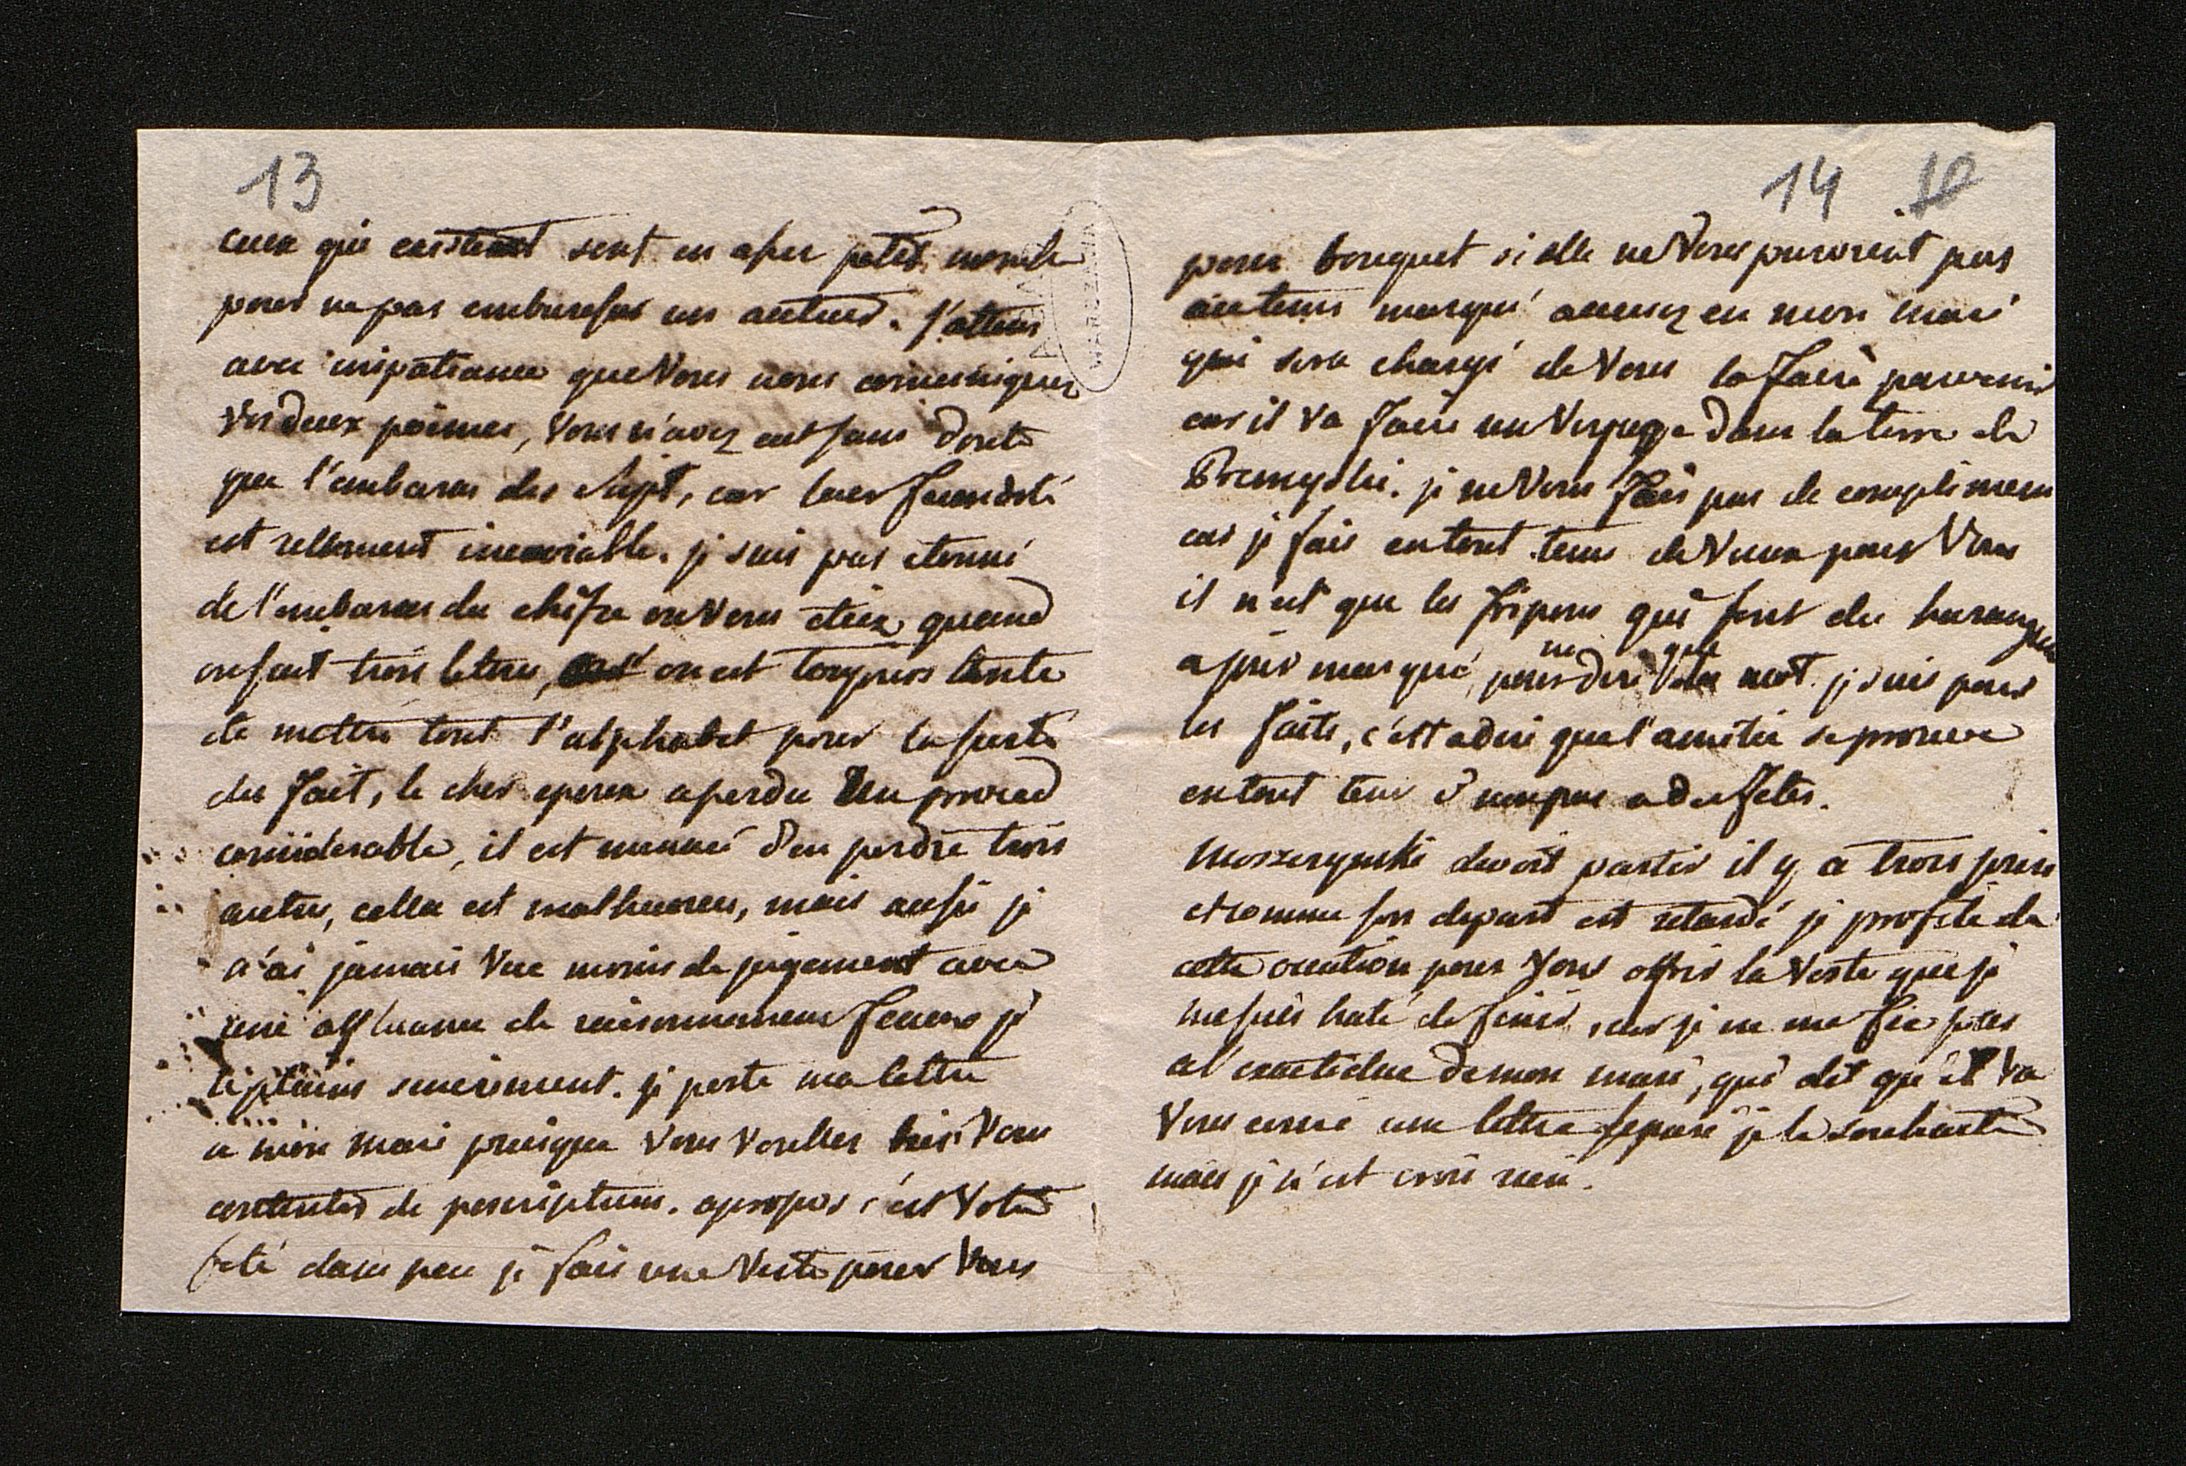 13
ceux qui existent sont en assez petit nombre
pour ne pas embarasser un auteur. J'attens
avec impatiance que Vous nous comuniquez
Vos deux poëmes, Vous n'avez eut sans doute
que l'embaras des sujet, car leur feconditê
est rellement . je suis pas etonné
de l'embaras du chifre ou Vous etiez, quand
on fait trois letres, on est toujours tanté
de metre tout l'alphabet pour la suite
du fait, le cher epoux a perdu un proced
considerable, il est menacé d'en perdre trois
autre, cella est malheureu, mais aussi je
n'ai jamais vue moins de jugement avec
une affluance de raisonnement je
le plains sincerement. je porte ma lettre
a mon mari puisque vous voullez Vous
contenter de poscriptum. apropos c'est Votre
fete dans peu je fais une Veste pour Vous
14 10
pour bouquet si elle ne Vous parvient pas
au tems marqué acusez en mon mari
qui sera chargé de Vous la faire parvenir
car il va faire un Voyage dans la terre de
Przemyslie. je ne Vous fais pas de complimens
car je fais en tout tems de Vœux pour Vous
il n'est que les fripons qui font des harangues
a jour marqué, pour ne dire que des mot. je suis pour
les faits, c'est a dire que l'amitié se prouve
en tout tems & non pas a des fetes.
Moszczynski devoit partir il y a trois jours
et comme son depart est retardé je profite de
cette ocation pour Vous offrir la Veste que je
me suis haté de finir, car je ne me fie pas
a l'exactidue de mon mari, qui dit qu'il va
Vous ecrire une lettre separé je le souhaite
mais je n'est crois rien.
WARSZAWA